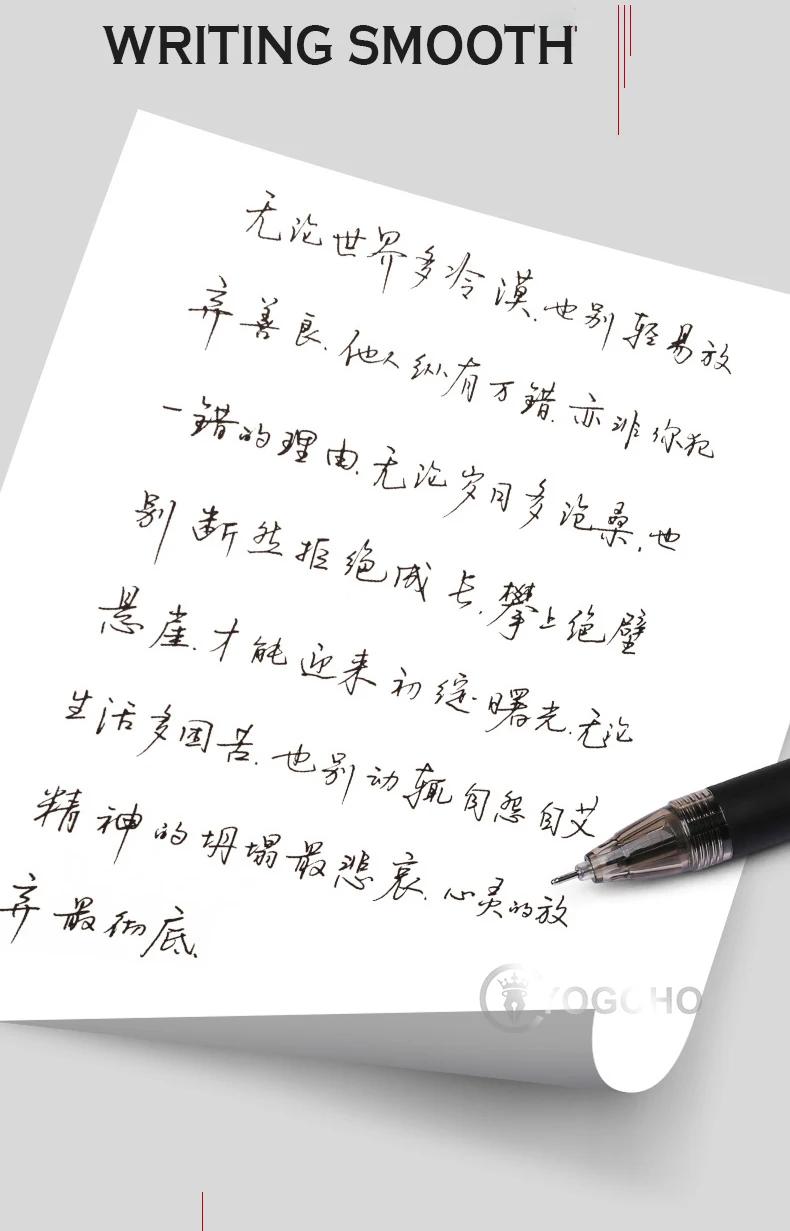 WRITING SMOOTH
无论世界多冷漠.也别轻易放
弃善良.他人纵有万错.亦非你犯
一错的理由.无论岁月多沧桑.也
别断然拒绝成长.攀上绝壁
悬崖.才能迎来初绽曙光.无论
生活多困苦.也别动辄自怨自艾
精神的坍塌最悲哀.心灵的放
弃最彻底.
YOGCHO